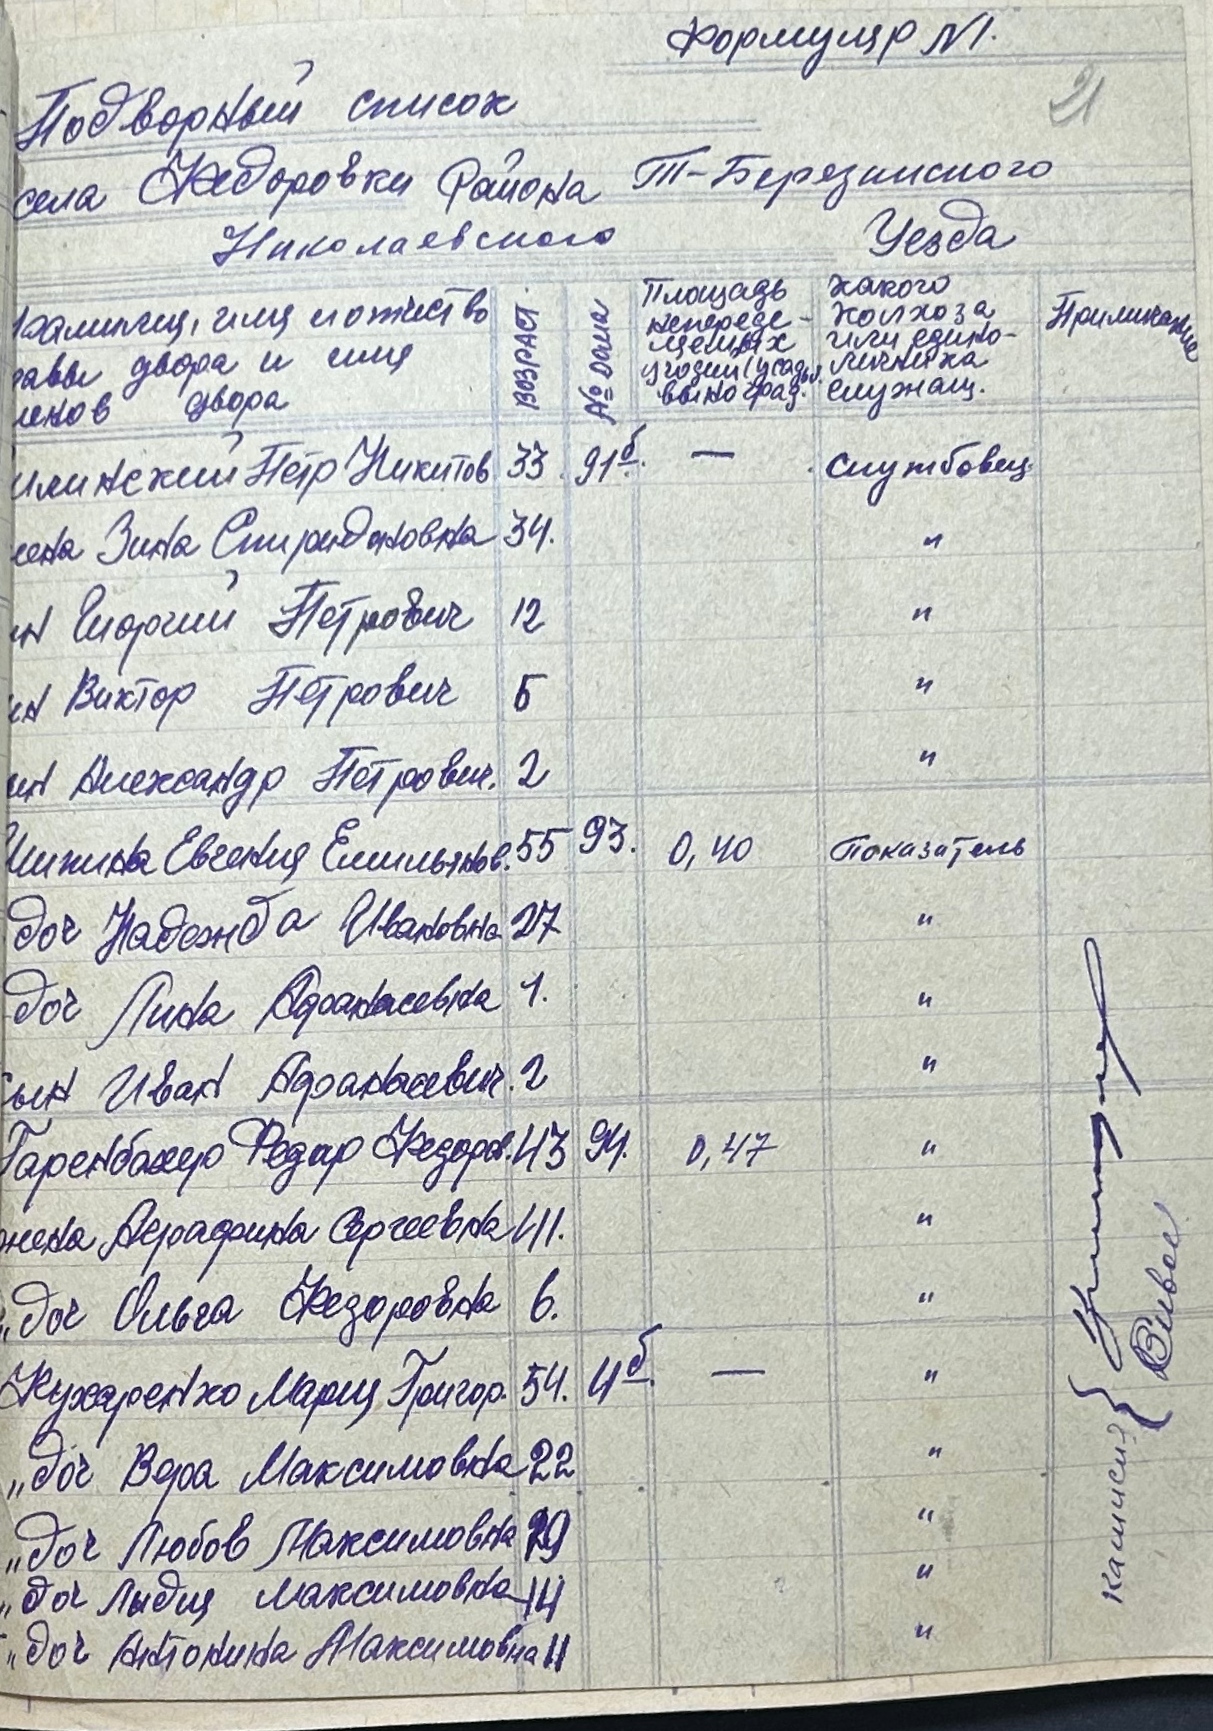 Формуляр №1.
21
Подворный список
села Федоровки Района Т-Березинского
Николаевского Уезда
Фамилия, имя и отчество главы двора и имя членов двора
ВОЗРАСТ
№ дома
Площадь непереде- угодий (усадьб. виноград.
какого колхоза или едино- личника служащ.
Примичание
Петр Никитов. 33. 91б. — службовец.
жена Зина Спиридоновна 34. "
сын Георгий Петрович 12 "
сын Виктор Петрович 5 "
сын Александр Петрович. 2 "
Евгения Емильянов. 55 93. 0,40 Показатель
доч Надежда Ивановна 27 "
доч Лина Афанасевна 1. "
сын Иван Афанасевич. 2 "
Федор Федоров. 43 94. 0,47 "
жена Серафина Сергеевна 41. "
" доч Ольга Федоровна 6. "
Кухаренко Мария Григор. 54. 4б. — "
" доч Вера Максимовна 22 "
" доч Любов Максимовна 19 "
" доч Лыдия Максимовна 14 "
" доч Антонина Максимовна 11 "
камисия {